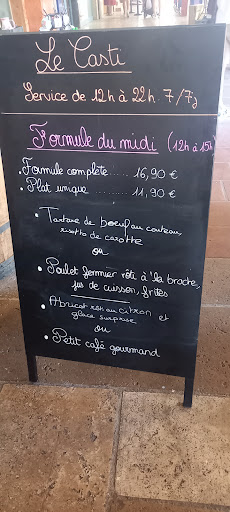 Le Casti
Service de 12h à 22h. 7/7j
Formule du midi (12h à 15h
• Formule complète ..... 16,90 €
• Plat unique .......... 11,90 €
• Tartare de boeuf au couteau
risotto de carotte
ou
• Poulet fermier rôti à la broche,
jus de cuisson, frites
• Abricot rôti au citron et
glace surprise
ou
• Petit café gourmand